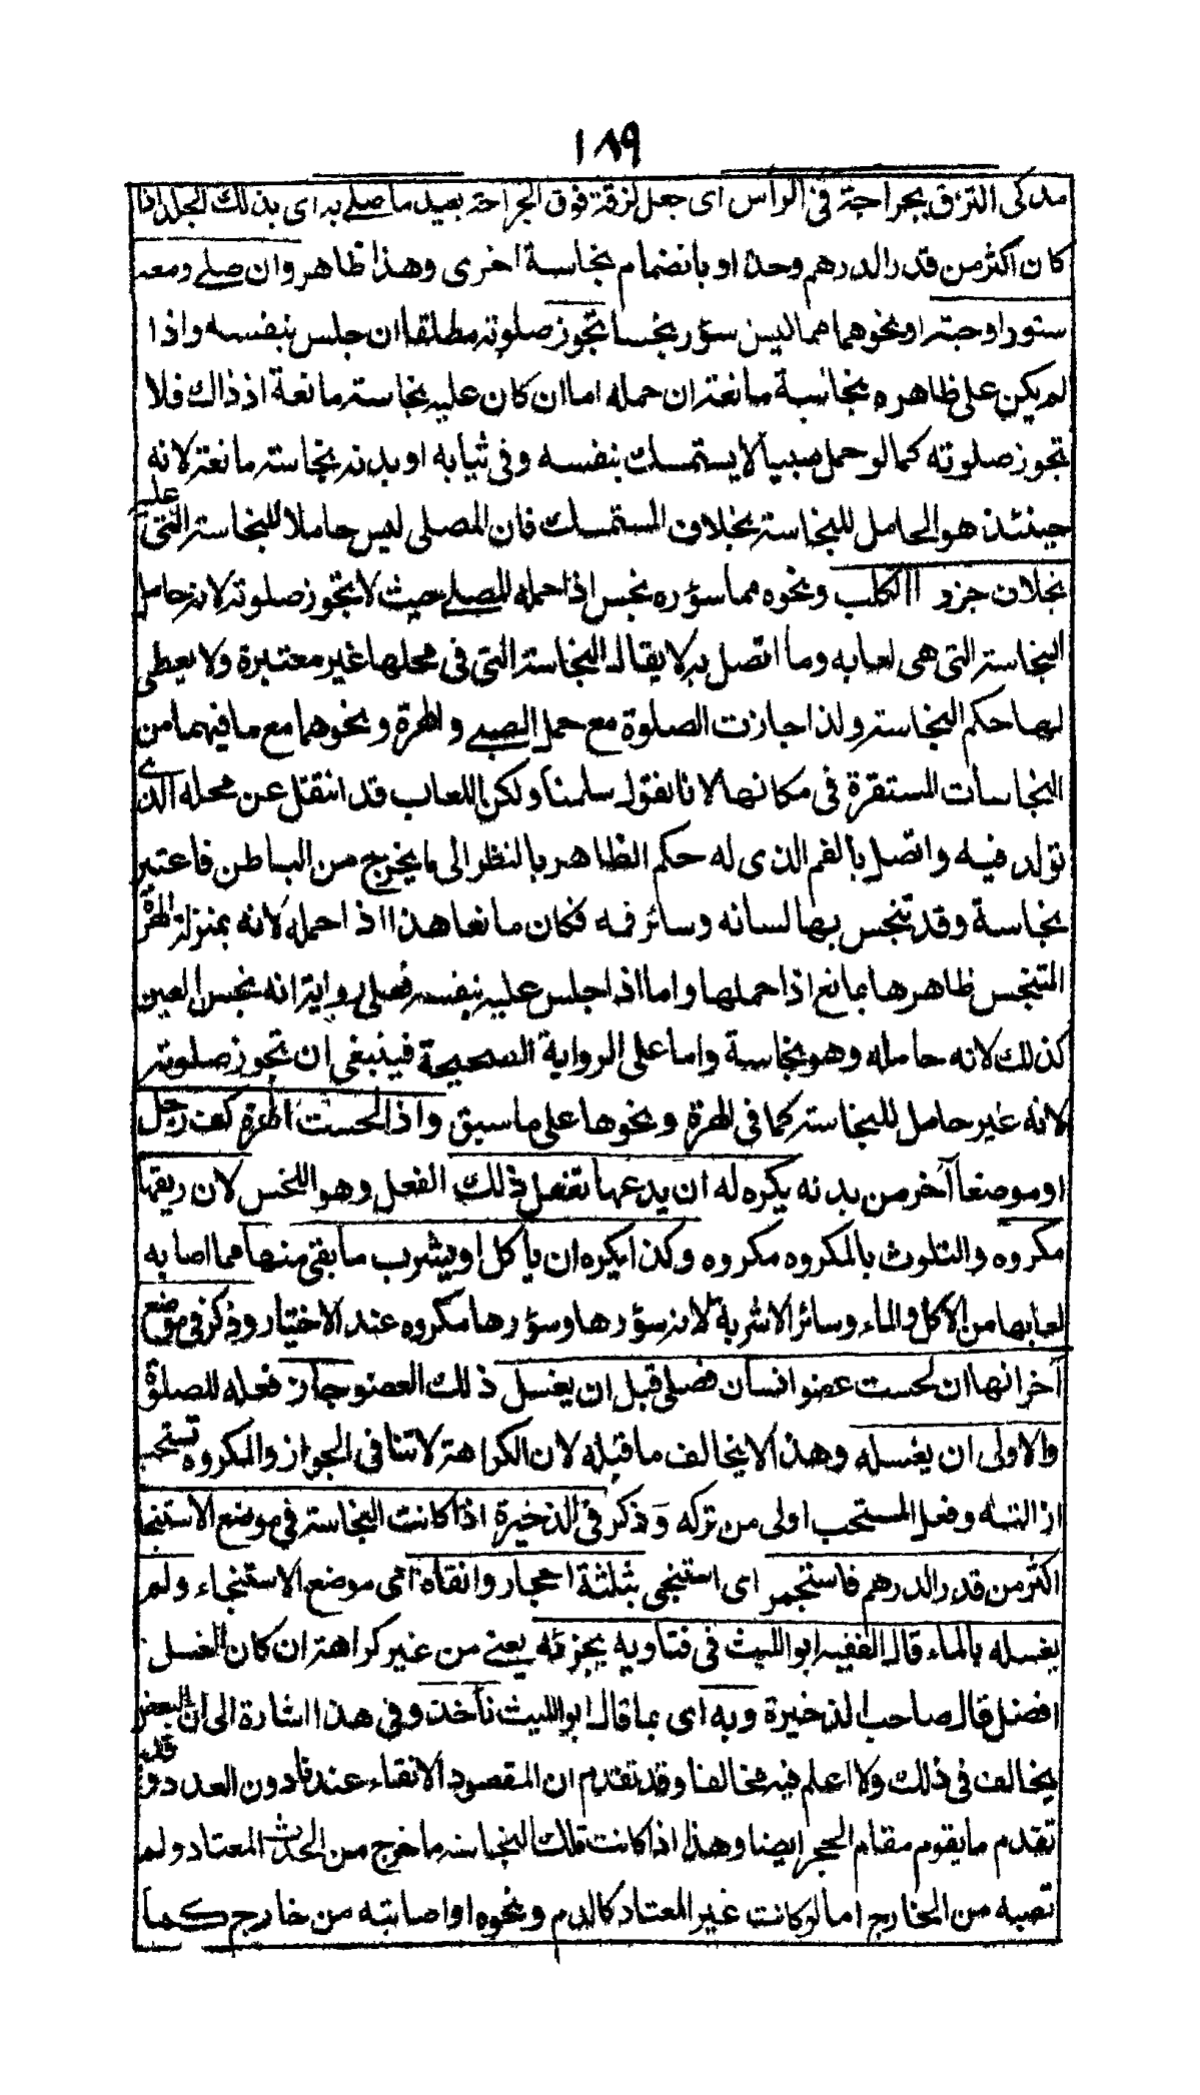 ١٨٩
مذكى التزق بجراحة فى الراس اى جعل لزقة فوق الجراحة يعيد ما صلے به اى بذلك الجلد اذا
كان اكثر من قدر الدرهم وحده او بانضمام نجاسة اخرى وهذا ظاهر وان صلے ومعه
سنور او حية او نحوهما مما ليس سؤره نجسا تجوز صلوته مطلقا ان جلس بنفسه واذا
لم يكن على ظاهره نجاسة مانعة ان حمله اما ان كان عليه نجاسة مانعة اذ ذاك فلا
تجوز صلوته كما لو حمل صبيا لا يستمسك بنفسه وفى ثيابه او بدنه نجاسة مانعة لانه
حينئذ هو الحامل للنجاسة بخلاف المستمسك فان المصلى ليس حاملا للنجاسة التى عليه
بخلاف جرو الكلب ونحوه مما سؤره نجس اذا حمله المصلے حيث لا تجوز صلوته لانه حامل
النجاسة التى هى لعابه وما اتصل به لا يقال النجاسة التى فى محلها غير معتبرة ولا يعطى
لها حكم النجاسة ولذا جازت الصلوة مع حمل الصبے والهرة ونحوهما مع ما فيهما من
النجاسات المستقرة فى مكانها لانا نقول سلمنا ولكن اللعاب قد انتقل عن محله الذى
تولد فيه واتصل بالفم الذى له حكم الظاهر بالنظر الى ما يخرج من الباطن فاعتبر
نجاسة وقد تنجس بها لسانه وسائر فمه فكان مانعا هذا اذا حمله لانه بمنزلة الهرة
المتنجس ظاهرها بمانع اذا حملها واما اذا جلس عليه بنفسه فعلى رواية انه نجس العين
كذلك لانه حامله وهو نجاسة واما على الرواية الصحيحة فينبغى ان تجوز صلوته
لانه غير حامل للنجاسة كما فى الهرة ونحوها على ما سبق واذا لحست الهرة كف رجل
او موضعا آخر من بدنه يكره له ان يدعها تفعل ذلك الفعل وهو اللحس لان ريقها
مكروه والتلوث بالمكروه مكروه وكذا يكره ان ياكل او يشرب ما بقى منها مما اصابه
لعابها من الاكل والماء وسائر الاشربة لانه سؤرها وسؤرها مكروه عند الاختيار وذكر فى موضع
آخر انها ان لحست عضو انسان فصلى قبل ان يغسل ذلك العضو جاز فعله للصلوة
والاولى ان يغسله وهذا لا يخالف ما قبله لان الكراهة لا تنافى الجواز والمكروه تستحب
ازالته وفعل المستحب اولى من تركه وذكر فى الذخيرة اذا كانت النجاسة فى موضع الاستنجا
اكثر من قدر الدرهم فاستجمر اى استنجى بثلثة احجار وانقاه اى موضع الاستنجاء ولم
يغسله بالماء قال الفقيه ابو الليث فى فتاويه يجزئه يعنے من غير كراهة ان كان الغسل
افضل قال صاحب الذخيرة وبه اى بما قال ابو الليث نأخذ وفى هذا اشارة الى ان البعض
يخالف فى ذلك ولا اعلم فيه مخالفا وقد تقدم ان المقصود الانقاء عندنا دون العدد وقد
تقدم ما يقوم مقام الحجر ايضا وهذا اذا كانت تلك النجاسة ما خرج من الحدث المعتاد ولم
تصبه من الخارج اما لو كانت غير المعتاد كالدم ونحوه او اصابته من خارج كما